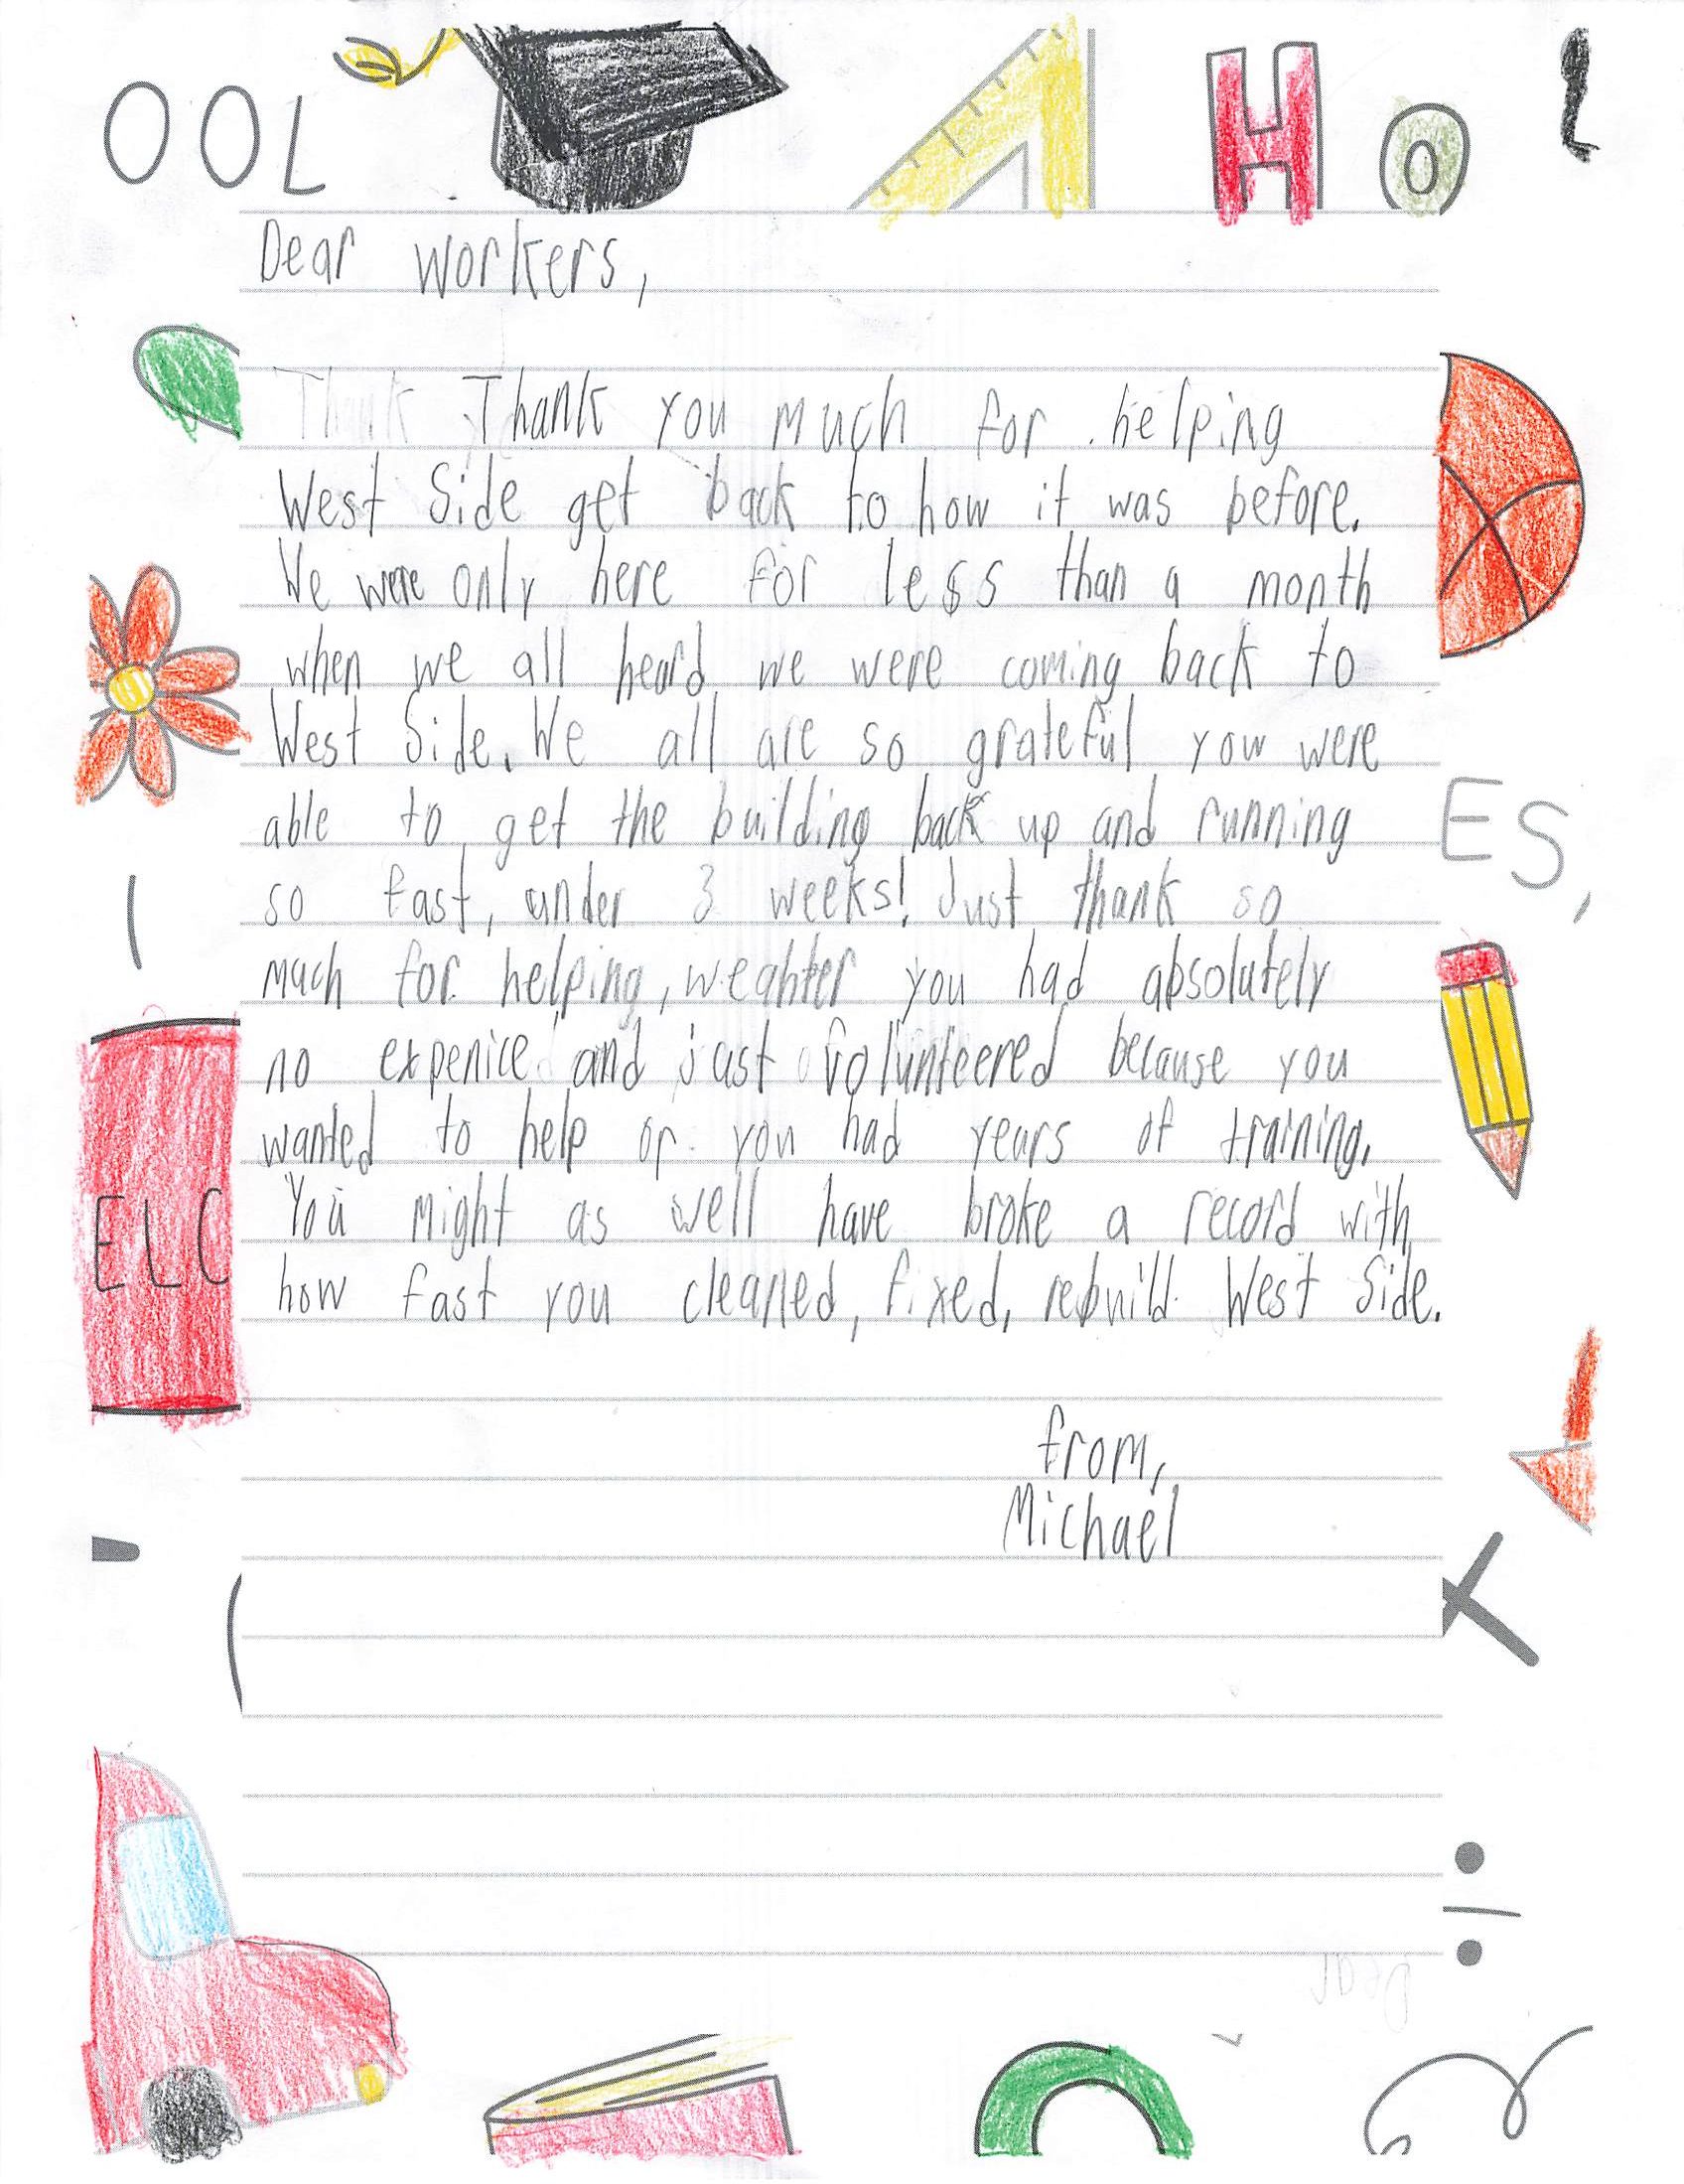 OOL H O
Dear workers,
Thank Thank you much for helping
West Side get back to how it was before.
We were only here for less than a month
when we all heard we were coming back to
West Side. We all are so grateful you were
able to get the building back up and running
ES,
so fast, under 3 weeks! Just thank so
much for helping, weahter you had absolutely
no expenice and just volunteered because you
wanted to help or you had years of training.
You might as well have broke a record with
ELC
how fast you cleaned, fixed, rebuild West Side.
from,
Michael
Dear